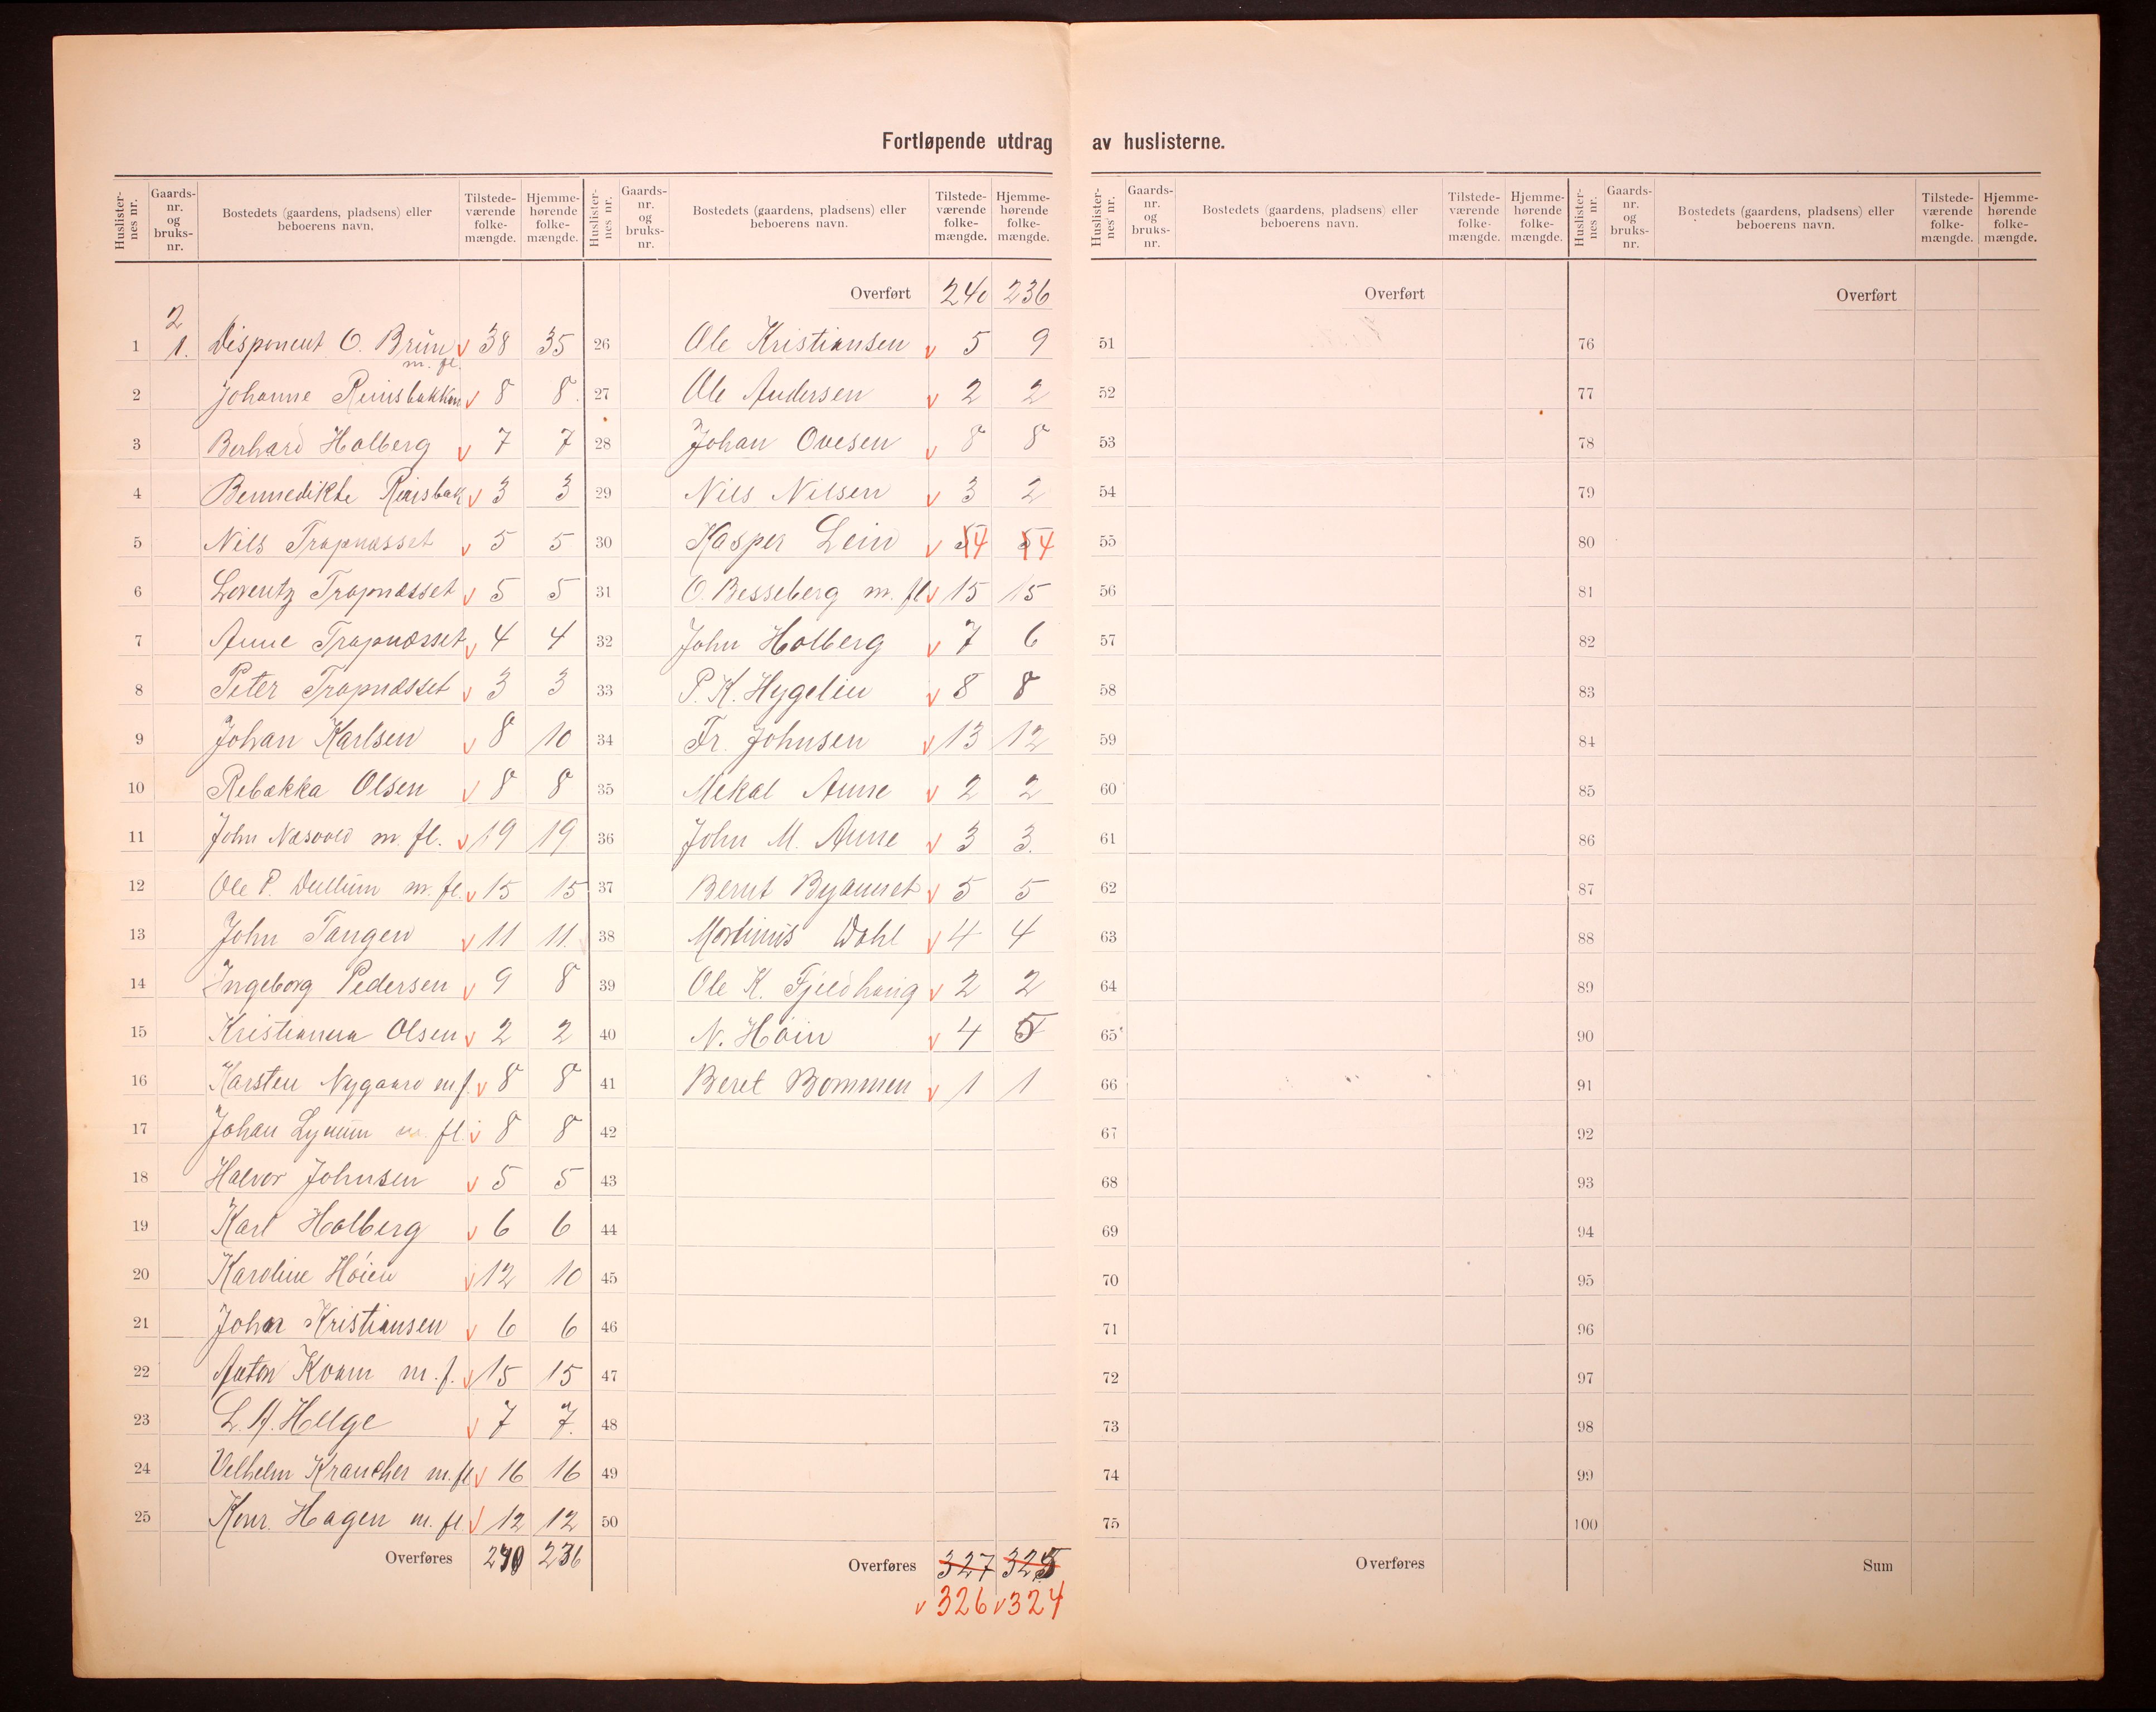 Fortløpende utdrag av huslisterne.
Huslisternes nr. Gaardsnr. og bruksnr. Bostedets (gaardens, pladsens) eller beboerens navn. Tilstedeværende folkemængde. Hjemmehørende folkemængde.
2
1 1. Disponent O. Brun m. fl. v 38 35
2 Johanne Reinsbakken v 8 8.
3 Berhard Holberg v 7 7
4 Bennedikte Reinsbak v 3 3
5 Nils Trapnæsset v 5 5
6 Lorentz Trapnæsset v 5 5
7 Anne Trapnæsset v 4 4
8 Peter Trapnæsset v 3 3
9 Johan Karlsen v 8 10
10 Rebækka Olsen v 8 8
11 John Næsvold m. fl. v 19 19
12 Ole P. Dullum m. fl. v 15 15
13 John Tangen v 11 11.
14 Ingeborg Pedersen v 9 8
15 Kristianna Olsen v 2 2
16 Karsten Nygaard m f. v 8 8
17 Johan Lynum m. fl. v 8 8
18 Halvor Johnsen v 5 5
19 Karl Holberg v 6 6
20 Karoline Höien v 12 10
21 Johan Kristiansen v 6 6
22 Anton Kvam m. f. v 15 15
23 L. A. Helge v 7 7.
24 Velhelm Krancher m. fl v 16 16
25 Konr. Hagen m. fl. v 12 12
Overføres 240 236
Huslisternes nr. Gaardsnr. og bruksnr. Bostedets (gaardens, pladsens) eller beboerens navn. Tilstedeværende folkemængde. Hjemmehørende folkemængde.
Overført 240 236
26 Ole Kristiansen v 5 9
27 Ole Andersen v 2 2
28 Johan Ovesen v 8 8
29 Nils Nilsen v 3 2
30 Kasper Lein v 5 4 5 4
31 O. Besseberg m. fl v 15 15
32 John Holberg v 7 6
33 P. K. Hygelien v 8 8
34 Fr. Johnsen v 13 12
35 Mekal Aune v 2 2
36 John M. Aune v 3 3.
37 Bernt Byaunet v 5 5
38 Martinus Wahl v 4 4
39 Ole K. Fjeldhaug v 2 2
40 N. Höin v 4 5
41 Beret Bommen v 1 1
42
43
44
45
46
47
48
49
50
Overføres 327 325
v 326 v 324
Huslisternes nr. Gaardsnr. og bruksnr. Bostedets (gaardens, pladsens) eller beboerens navn. Tilstedeværende folkemængde. Hjemmehørende folkemængde.
Overført
51
52
53
54
55
56
57
58
59
60
61
62
63
64
65
66
67
68
69
70
71
72
73
74
75
Overføres
Huslisternes nr. Gaardsnr. og bruksnr. Bostedets (gaardens, pladsens) eller beboerens navn. Tilstedeværende folkemængde. Hjemmehørende folkemængde.
Overført
76
77
78
79
80
81
82
83
84
85
86
87
88
89
90
91
92
93
94
95
96
97
98
99
100
Sum